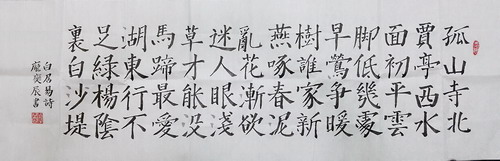 孤山寺北
賈亭西水
面初平雲
脚低幾處
早鶯爭暖
樹誰家新
燕啄春泥
亂花漸欲
迷人眼淺
草才能没
馬蹄最愛
湖東行不
足綠楊陰
裏白沙堤
白居易詩
龐奕辰書